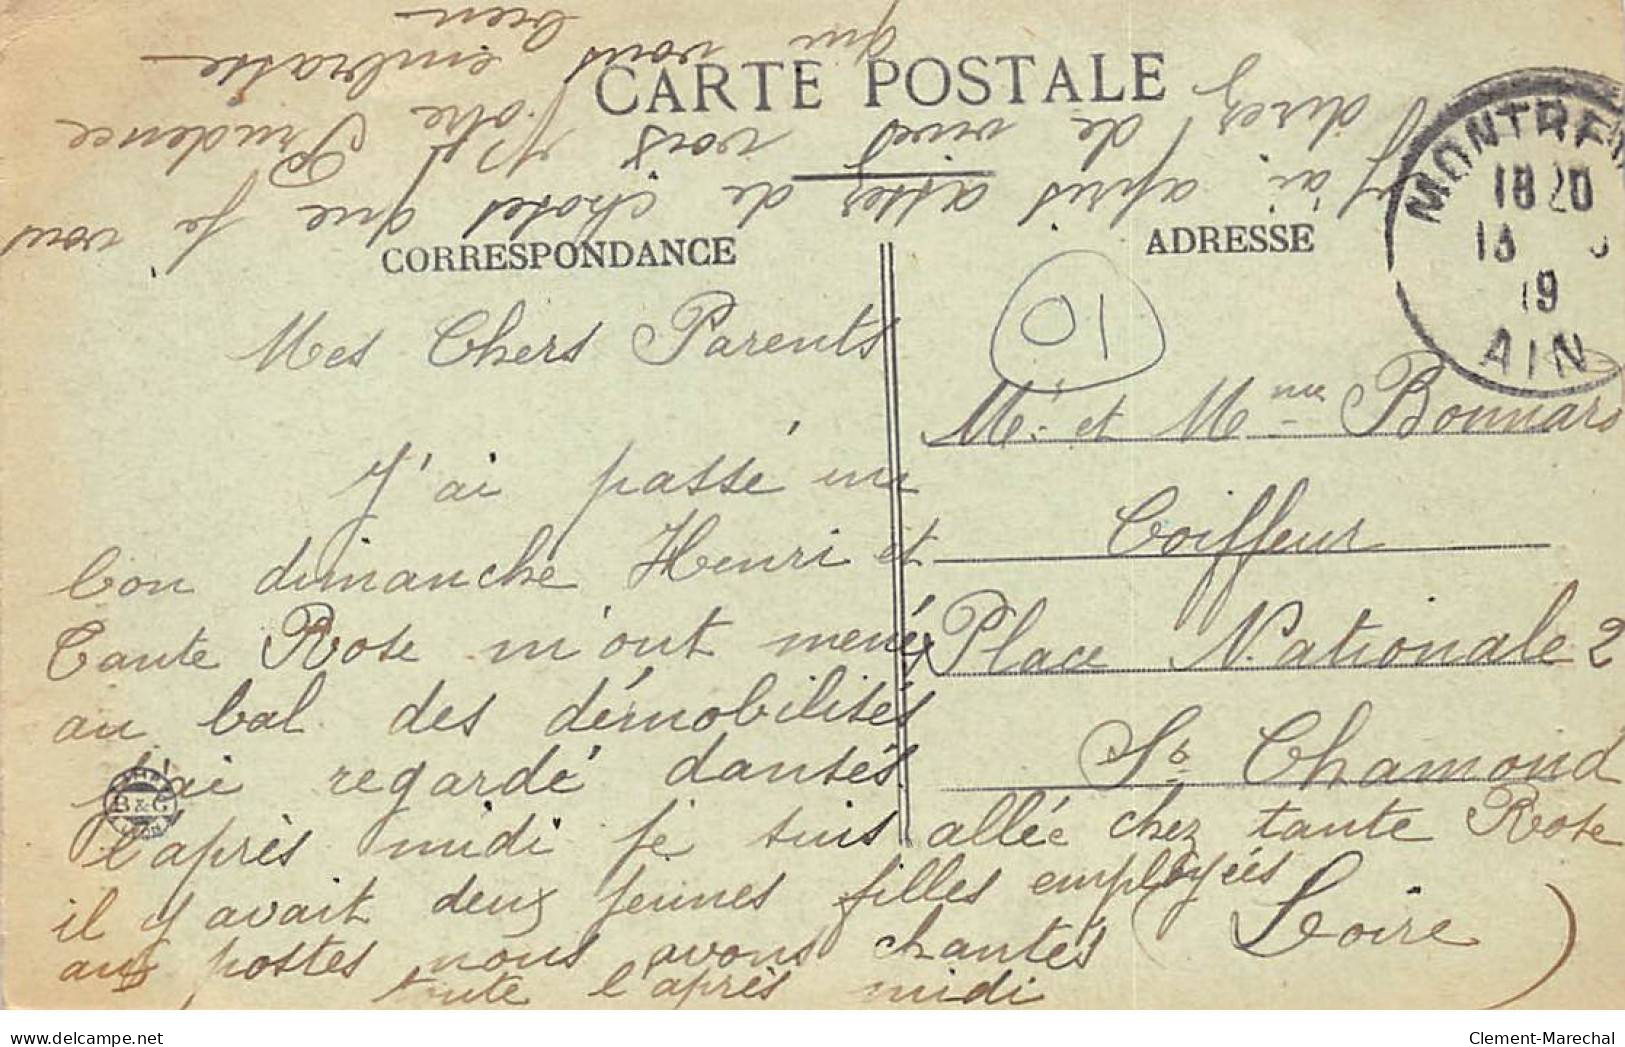 CARTE POSTALE
CORRESPONDANCE
ADRESSE
MONTRE
18 20
13
19
AIN
01
Mes Chers Parents
J'ai passé un
bon dimanche Henri et
Tante Rose m'ont menés
au bal des démobilisés
j'ai regardé dansés
l'après midi je suis allée chez tante Rose
il y avait deux jeunes filles employées
aux postes nous avons chantés
toute l'après midi
j'ai apris assez de choses que je vous
direz de vives vois Votre Prudence
qui vous embrasse
bien
Mr et Mme Bonnard
Coiffeur
Place Nationale 2
St Chamond
(Loire)
B & G
delcampe.net
Clement-Marechal